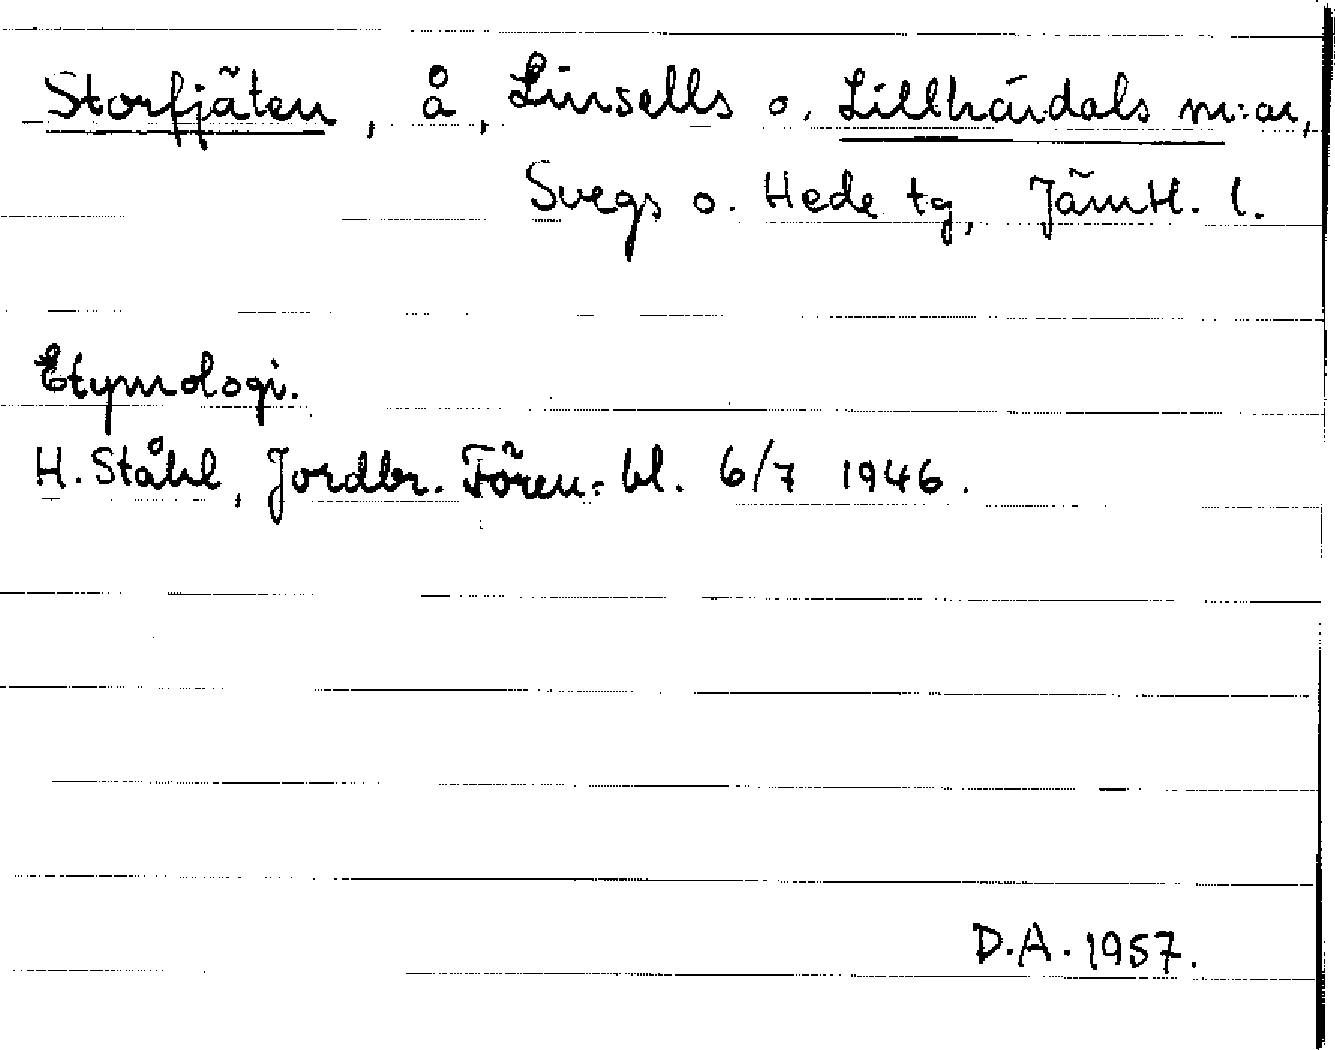 Storfjäten, å, Linsells o. Lillhärdals m:ar,
Svegs o. Hede tg, Jämtl. l.
Etymologi.
H. Ståhl, Jordbr. Fören:bl. 6/7 1946.
D.A. 1957.